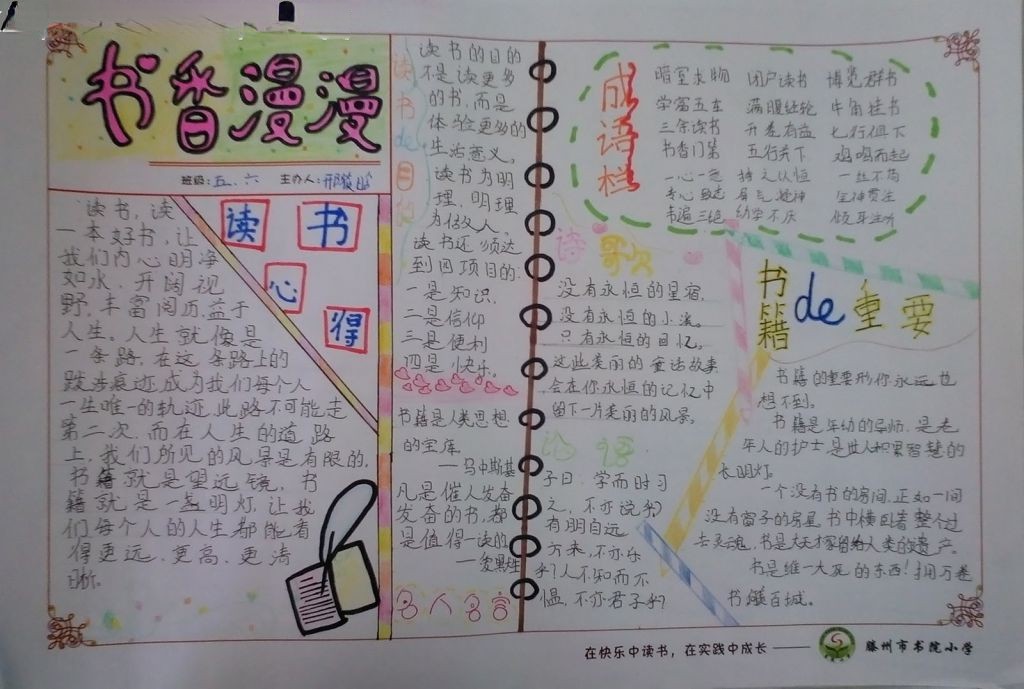 书香漫漫
班级:五、六 主办人:
读书心得
读书,读
一本好书,让
我们内心明净
如水,开阔视
野,丰富阅历,益于
人生。人生就像是
一条路,在这条路上的
跋涉痕迹,成为我们每个人
一生唯一的轨迹,此路不可能走
第二次,而在人生的道路
上,我们所见的风景是有限的,
书籍就是望远镜,书
籍就是一盏明灯,让我
们每个人的人生都能看
得更远,更高,更清
晰。
读书de目的
读书的目的
不是读更多
的书,而是
体验更多的
生活意义。
读书为明
理,明理
为做人。
读书还须达
到四项目的:
一是知识,
二是信仰
三是便利
四是快乐。
书籍是人类思想
的宝库。
——马申斯基
凡是催人发奋
发奋的书,都
是值得一读的
——爱默生
名人名言
成语栏
暗室求物 闭户读书 博览群书
学富五车 满腹经轮 牛角挂书
三余读书 开卷有益 七行俱下
书香门第 五行并下 鸡鸣而起
一心一意 持之以恒 一丝不苟
专心致志 屏气凝神 全神贯注
韦编三绝 幼学不厌 倾耳注听
读 歌
没有永恒的星宿,
没有永恒的小溪。
只有永恒的回忆。
这些美丽的童话故事
会在你永恒的记忆中
留下一片美丽的风景。
论 语
子曰:学而时习
之,不亦说乎)
有朋自远
方来,不亦乐
乎?人不知而不
愠,不亦君子乎?
书籍de重要
书籍的重要形你永远也
想不到。
书籍是年幼的导师,是老
年人的护士,是世人积累智慧的
长明灯。
一个没有书的房间,正如一间
没有窗子的房屋 书中横卧着整个过
去灵魂,书是天才留给人类的遗产。
书是维一大死的东西!拥万卷
书 百城。
在快乐中读书,在实践中成长 ——— 滕州市书院小学